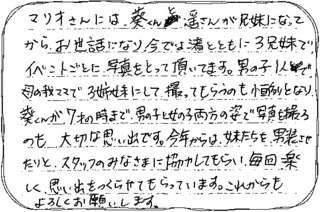 マリオさんには、葵くん、遥さんが兄妹になって
から、お世話になり、今では渚とともに3兄妹で、
イベントごとに写真をとって頂いてます。男の子1人で
母の我ママで3姉妹にして撮ってもらうのも恒例となり、
葵くんが7才の時まで、男の子と女の子両方の姿で写真を撮る
のも、大切な思い出です。今年からは、妹たちを男装させ
たりと、スタッフのみなさまに協力してもらい、毎回楽
しく、思い出をつくらせてもらっています。これからも
よろしくお願いします。